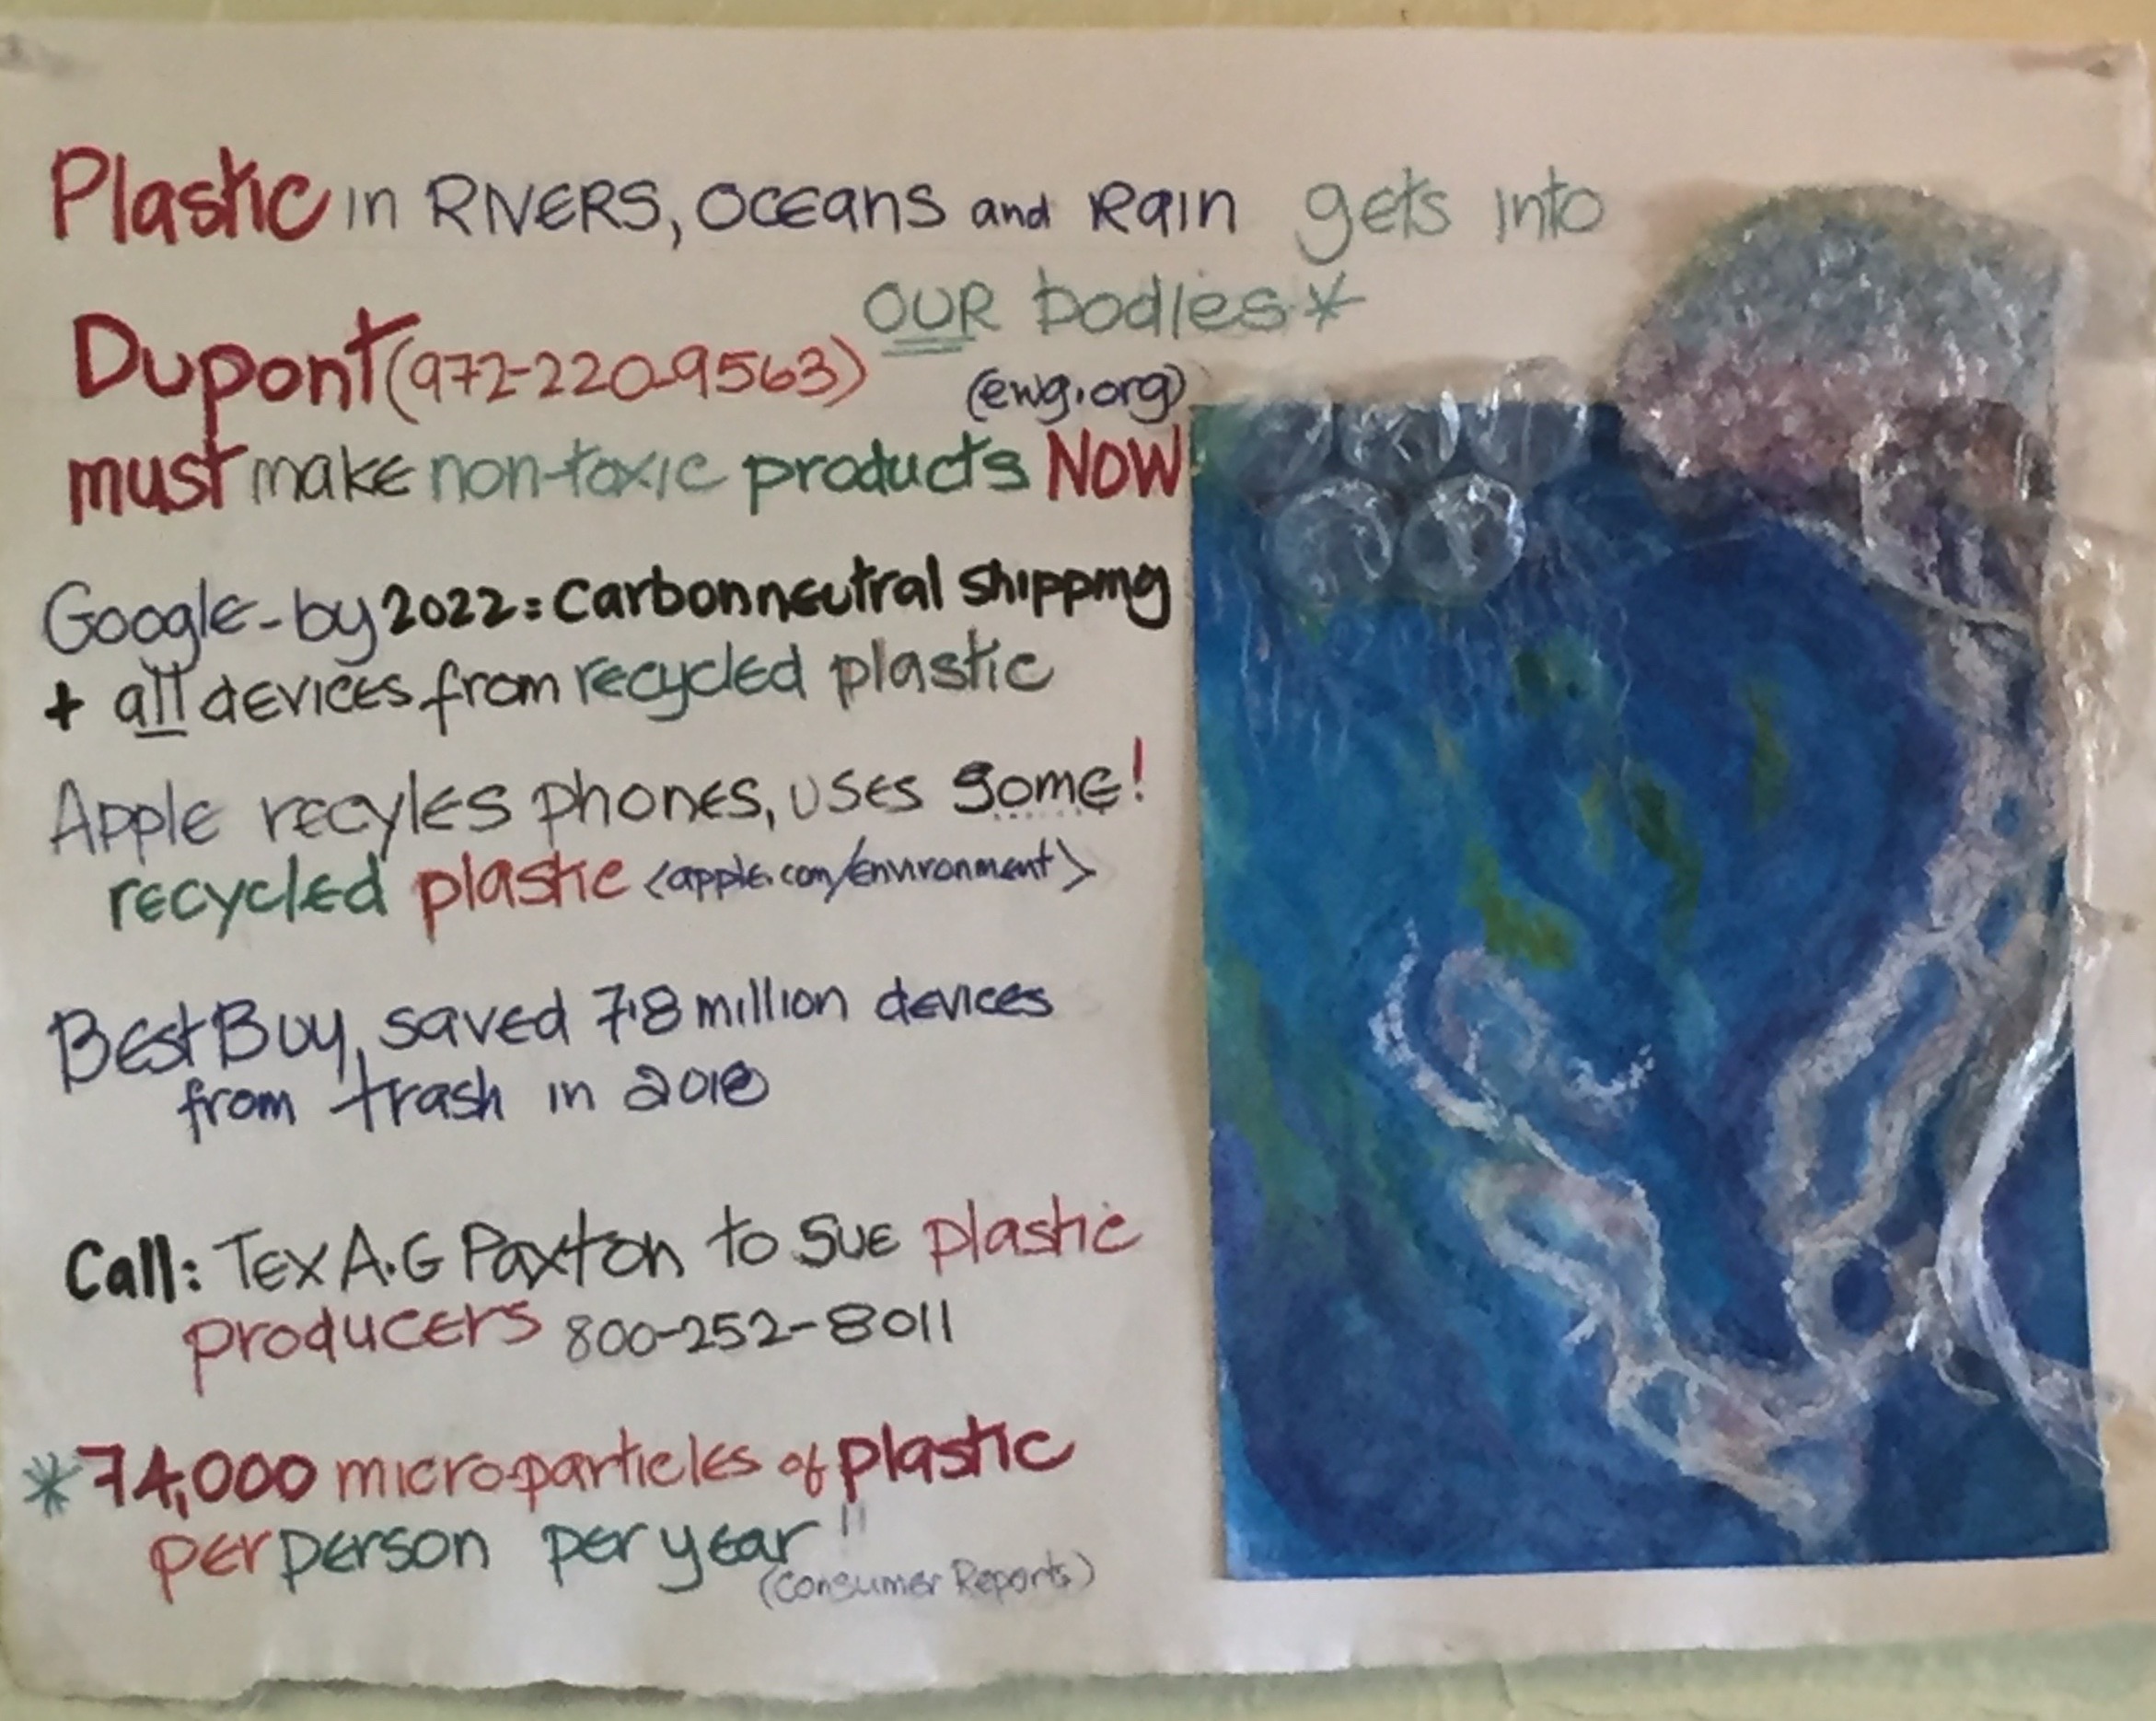 Plastic in RIVERS, OCEans and Rain gets into
OUR bodies*
Dupont (972-220-9563)
(ewg.org)
must make non-toxic products NOW
Google-by 2022: Carbonneutral shipping
+ all devices from recycled plastic
Apple recyles phones, uses some!
recycled plastic <apple.com/Environment>
Best Buy, saved 7.8 million devices
from trash in 2018
Call: Tex A.G Paxton to sue plastic
producers 800-252-8011
*74,000 microparticles of plastic
per person per year"
(Consumer Reports)